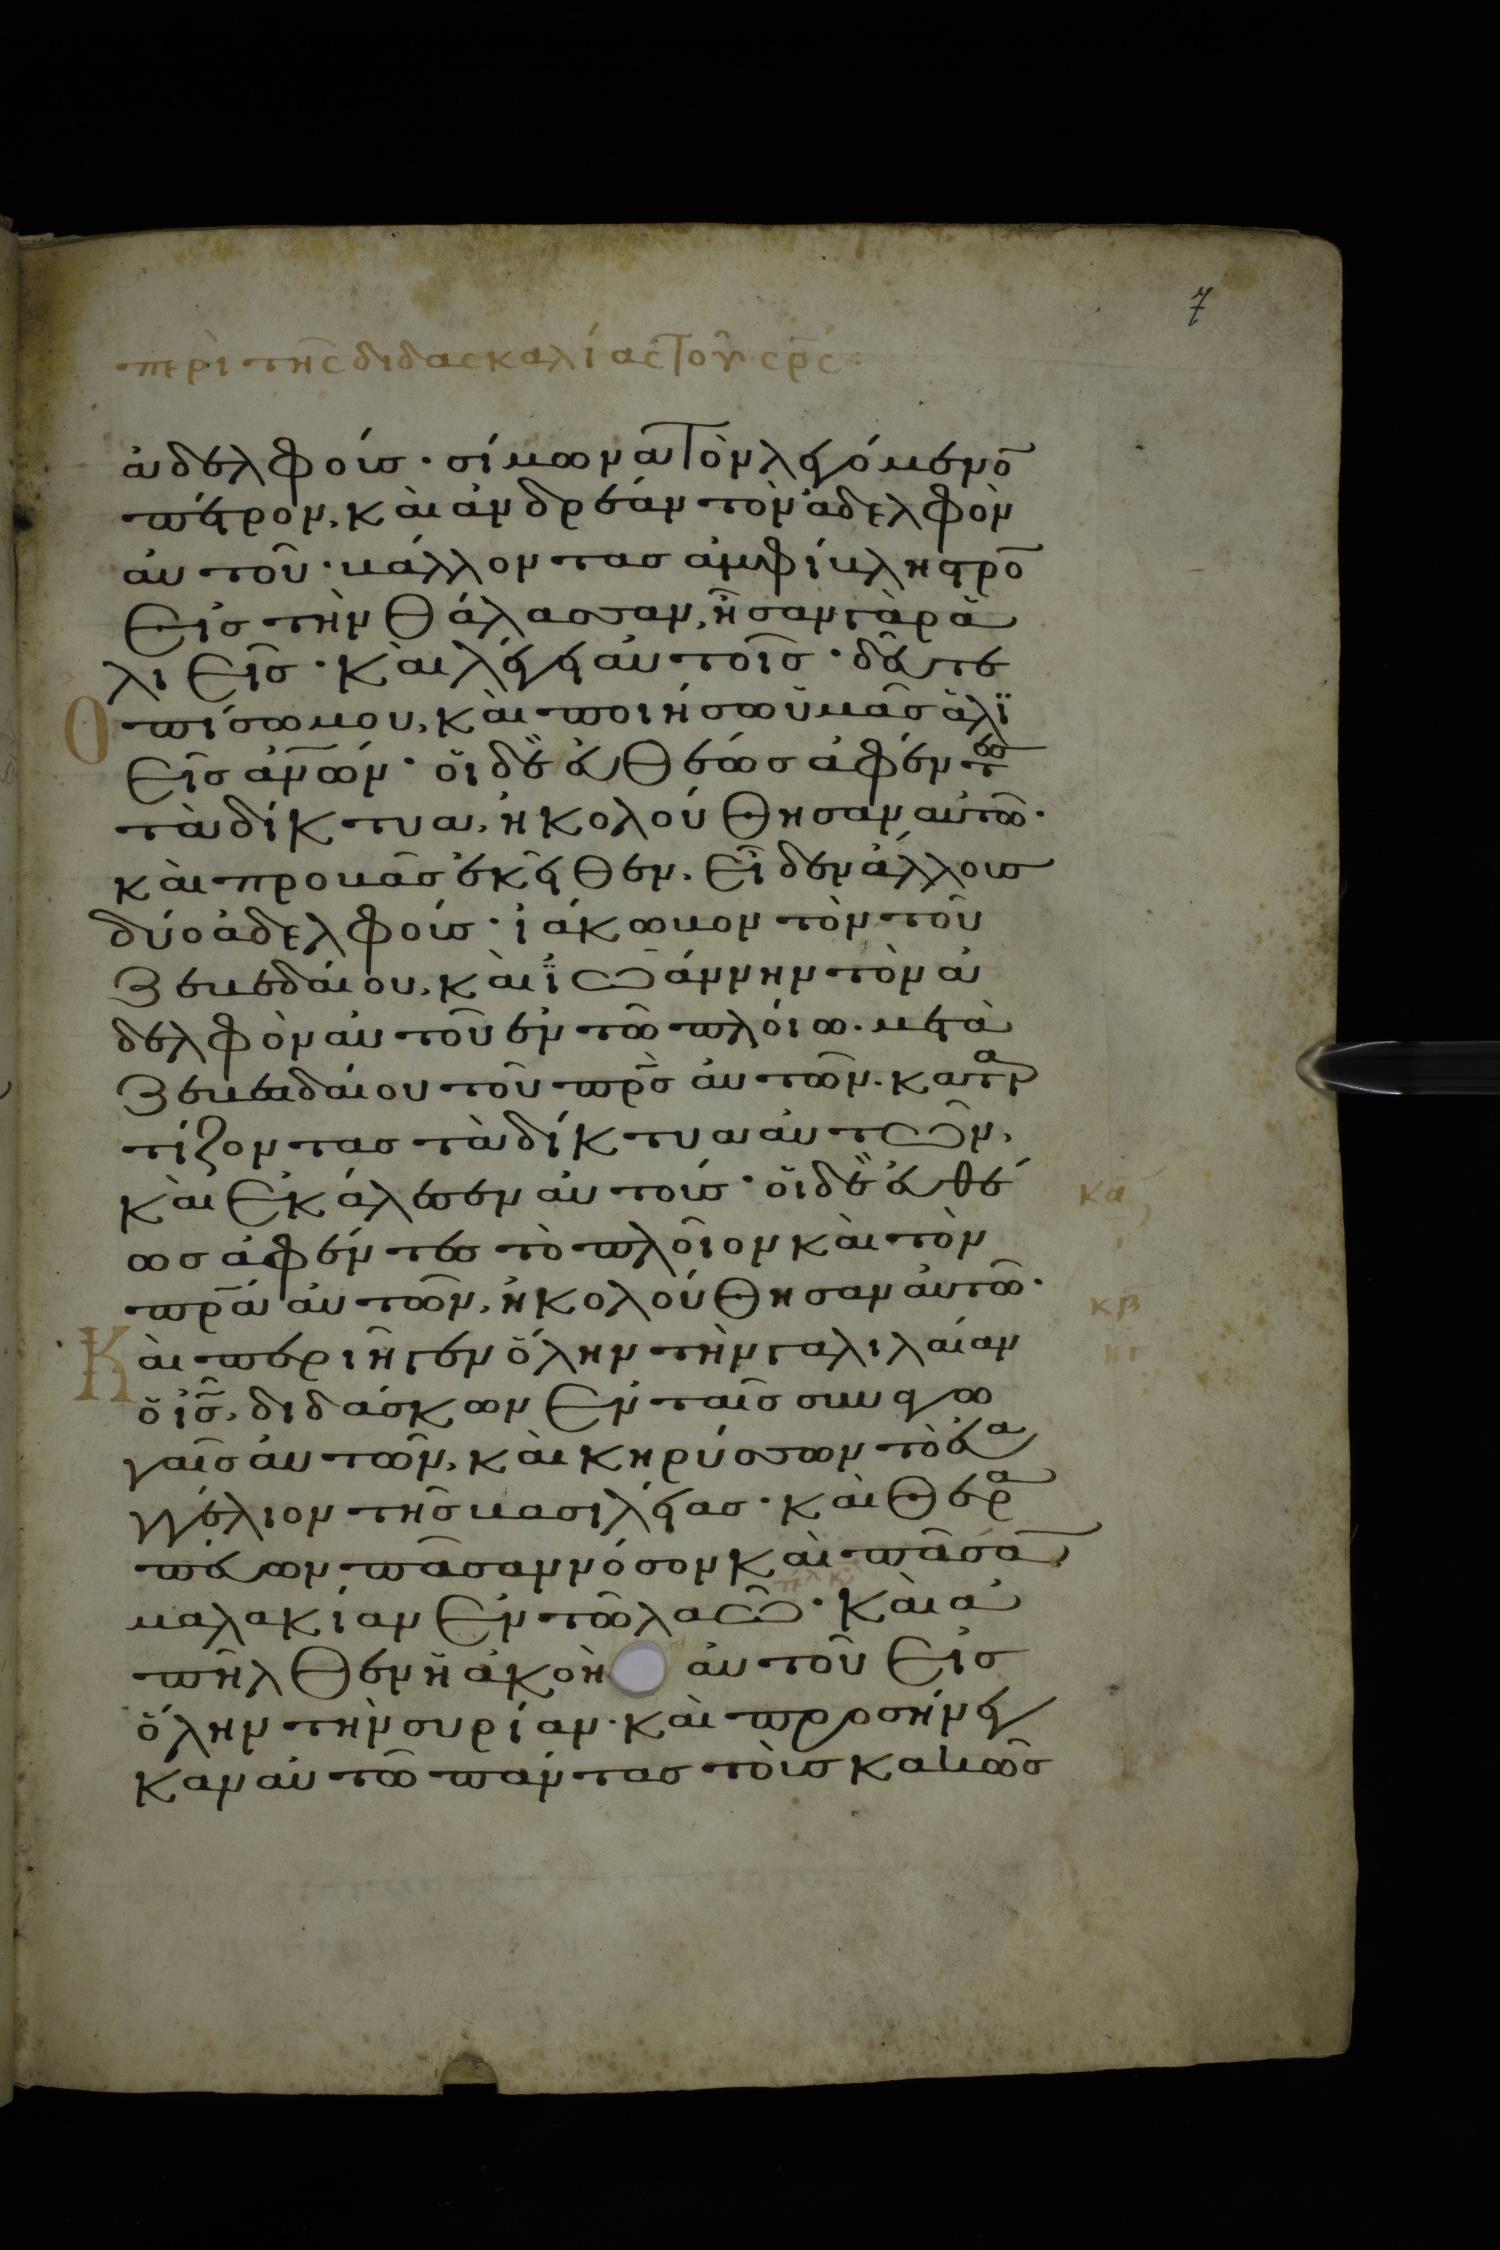 7
περὶ τῆς διδασκαλίας τοῦ σρ̅ς
ἀδελφούς· σίμωνα τὸν λεγόμενο̅
πέτρον, καὶ ἀνδρέαν τὸν ἀδελφὸν
αὐτοῦ· βάλλοντας ἀμφίβληστρο̅
εἰς τὴν θάλασσαν, ἦσαν γὰρ ἁ
λιεῖς· καὶ λέγει αὐτοῖς· δεῦτε
Ὀπίσω μου, καὶ ποιήσω ὑμᾶς ἁλϊ
εῖς ἀν̅ων· οἱ δὲ εὐθέως ἀφέντες
τὰ δίκτυα, ἠκολούθησαν αὐτῶ·
καὶ προβὰς ἐκεῖθεν. εἶδεν ἄλλους
δύο ἀδελφούς· ἰάκωβον τὸν τοῦ
ζεβεδαίου, καὶ ἰωάννην τὸν ἀ
δελφὸν αὐτοῦ ἐν τῶ πλοίω. μετὰ
ζεβεαιδαίου τοῦ πρ̅ς αὐτῶν. καταρ
τίζοντας τὰ δίκτυα αὐτῶν,
καὶ ἐκάλεσεν αὐτούς· οἱ δὲ εὐθέ
ως ἀφέντες τὸ πλοῖον καὶ τὸν
πρ̅α αὐτῶν, ἠκολούθησαν αὐτῶ·
Καὶ περιῆγεν ὅλην τὴν γαλιλαίαν
ὁ ἰς̅, διδάσκων ἐν ταῖς συναγω
γαῖς αὐτῶν, καὶ κηρύσσων τὸ εὐα
γγέλιον τῆς βασιλείας· καὶ θερα
πεύων πᾶσαν νόσον καὶ πᾶσα̅
μαλακίαν ἐν τῶ λαῶ· καὶ ἀ
πῆλθεν ἡ ἀκοὴ αὐτοῦ εἰς
ὅλην τὴν συρίαν· καὶ προσήνεγ
καν αὐτῶ πάντας τοὺς κακῶς
κα
κβ